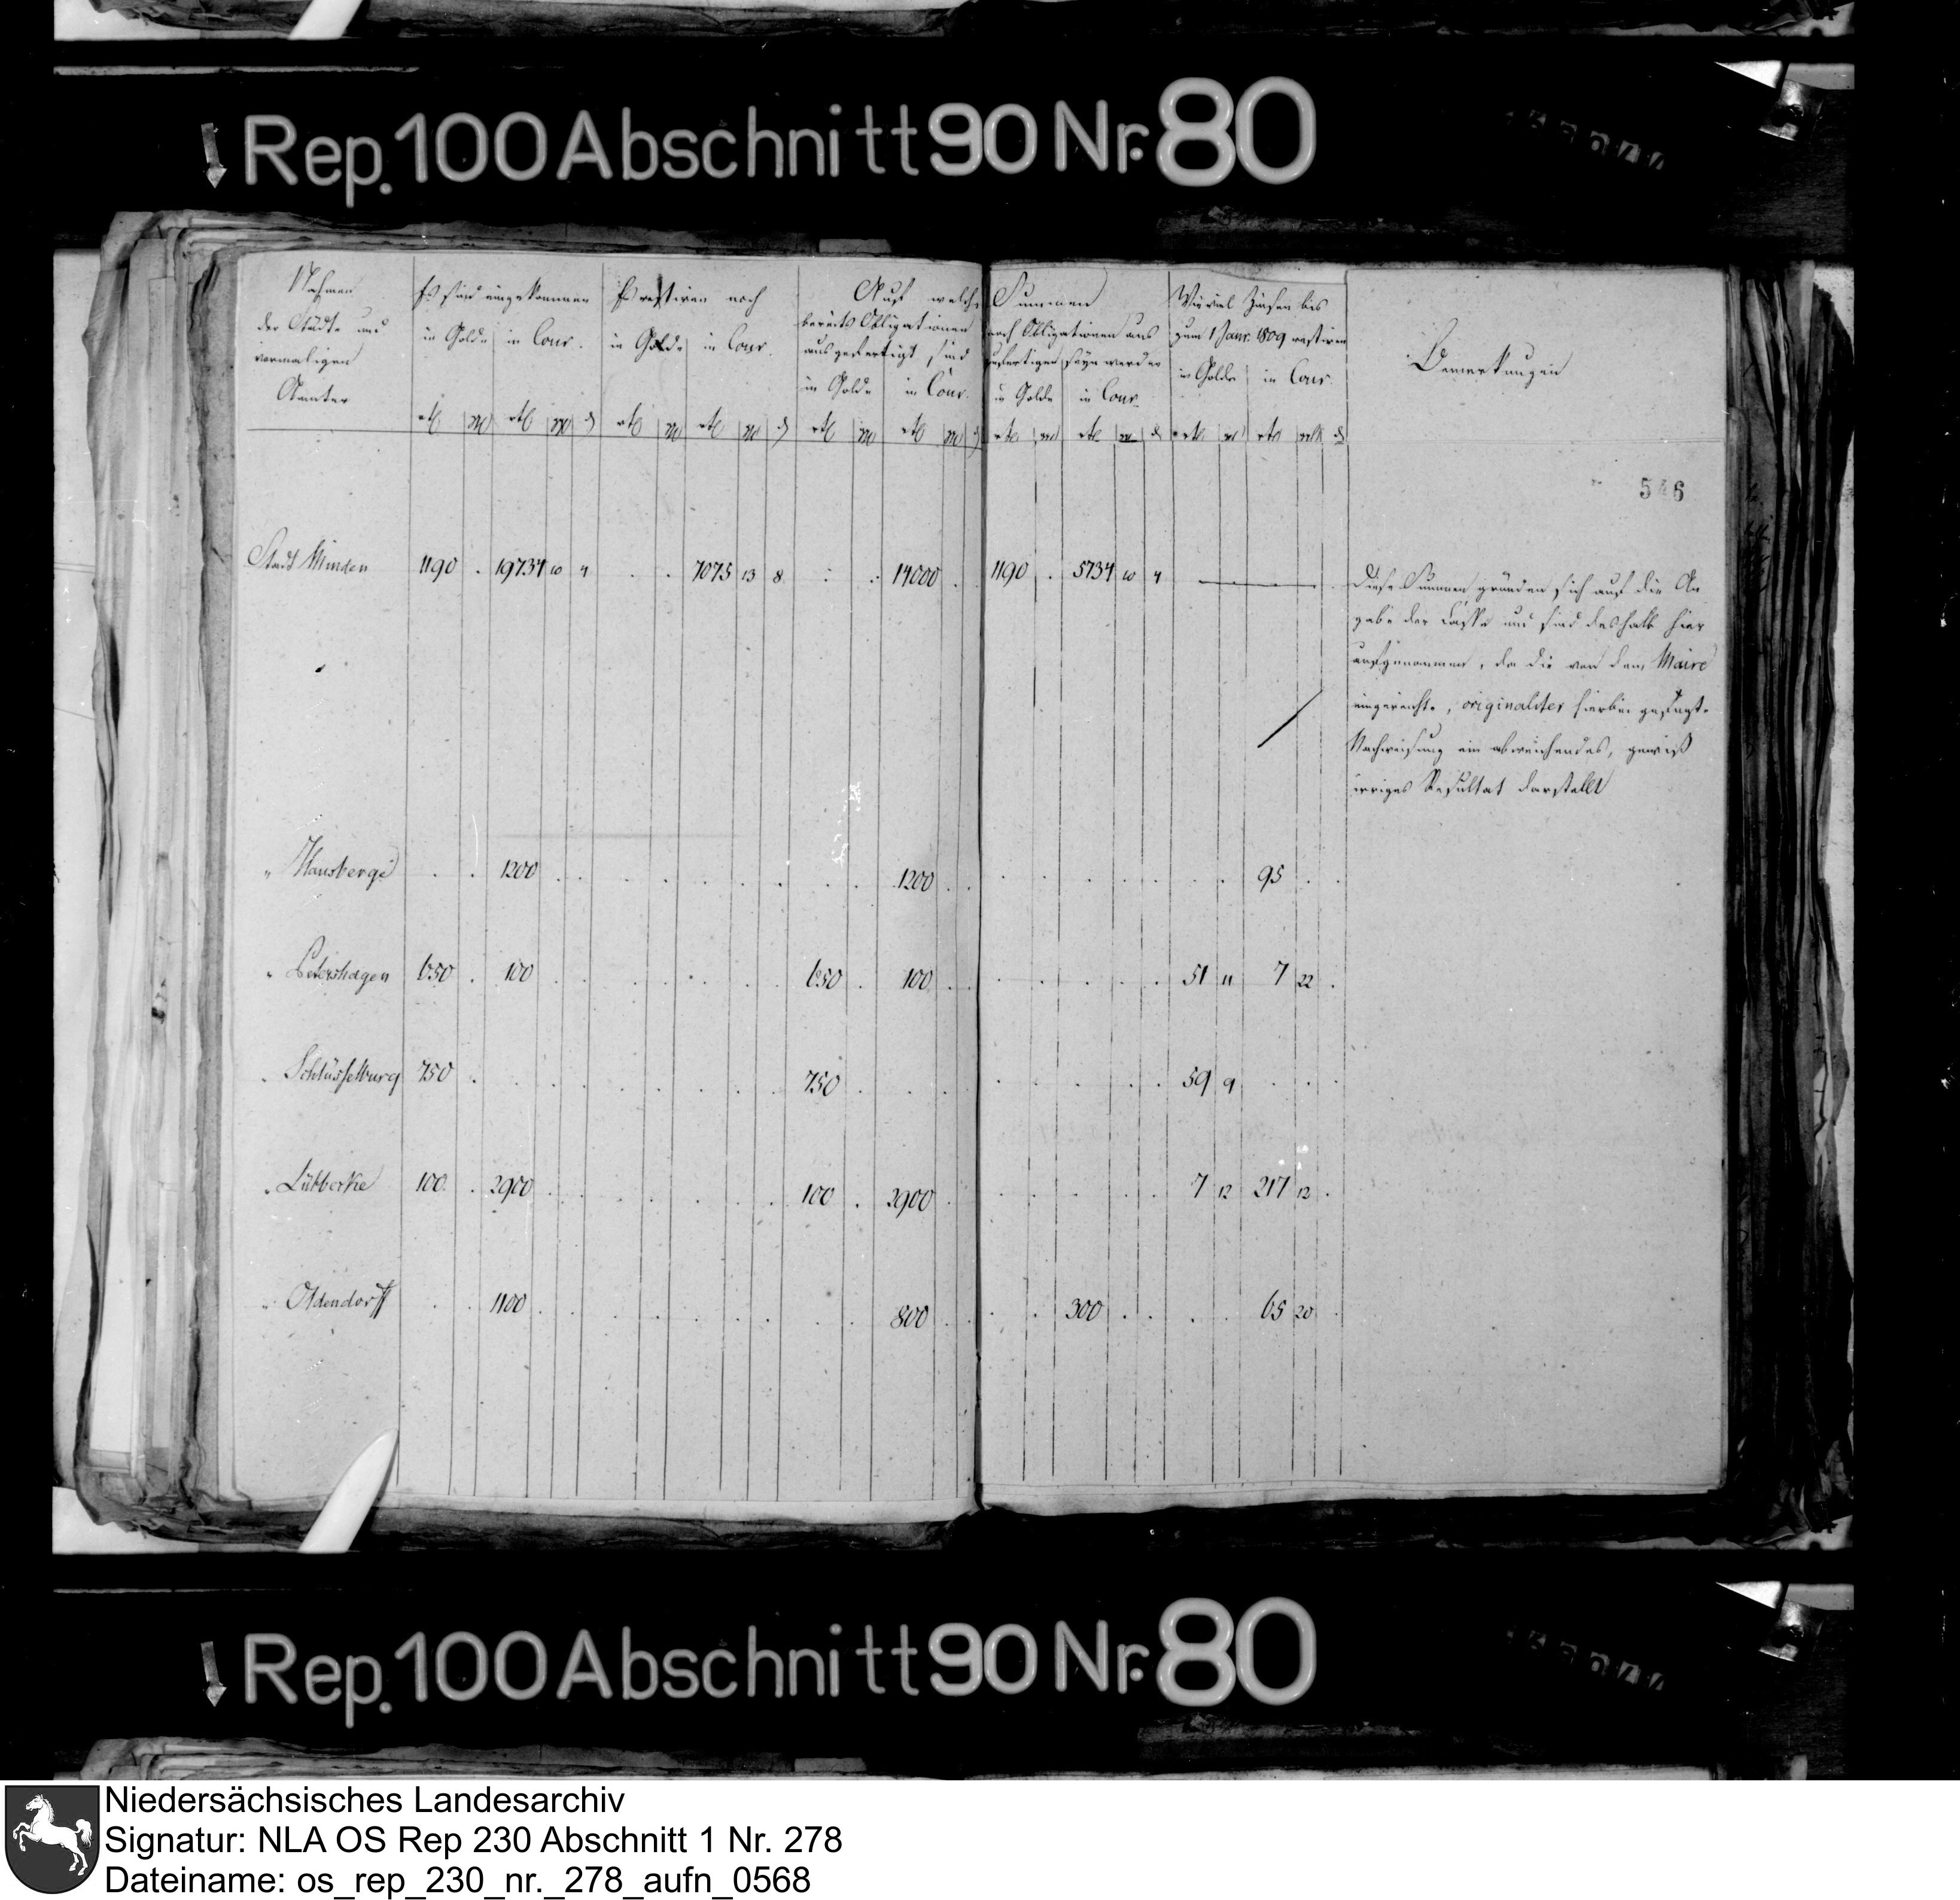 Rep. 100 Abschnitt 90 Nr. 80
Nahmen der Städte und vormaligen Aemter
Es sind eingekommen in Golde in Cour.
Es restiren noch in Golde in Cour.
Auf welche Summen
bereits Obligationen ausgefertigt sind in Golde in Cour.
noch Obligationen aus zufertigen seyn werden in Golde in Cour.
Wieviel Zinsen bis zum 1 Janr. 1809 restiren in Golde in Cour.
Bemerkungen
546
Stadt Minden 1190 . 19734 10 4 . . 7075 13 8 . . 14000 . . 1190 . 5734 10 4 —
Diese Summen gründen sich auf die An
gabe der Casse und sind deshalb hier
aufgenommen, da die von dem Maire
eingereichte, originaliter hierbei gefügte
Nachweisung ein abweichendes, gewiß
irriges Resultat darstellt
" Hausberge . . 1200 . . 1200 . . 95 . .
" Petershagen 650 . 100 . . 650 . 100 . . 51 11 7 22 .
" Schlüsselburg 750 . . 750 . . 59 9 . . .
" Lübbecke 100 . 2900 . . 100 . 2900 . . 7 12 217 12 .
" Oldendorff . . 1100 . . 800 . . 300 . . 65 20 .
Rep. 100 Abschnitt 90 Nr. 80
Niedersächsisches Landesarchiv
Signatur: NLA OS Rep 230 Abschnitt 1 Nr. 278
Dateiname: os_rep_230_nr._278_aufn_0568